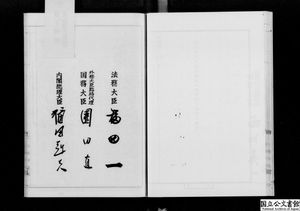 法務大臣 福田一
外務大臣臨時代理
国務大臣 園田直
内閣総理大臣 福田赳夫
国立公文書館
National Archives of Japan